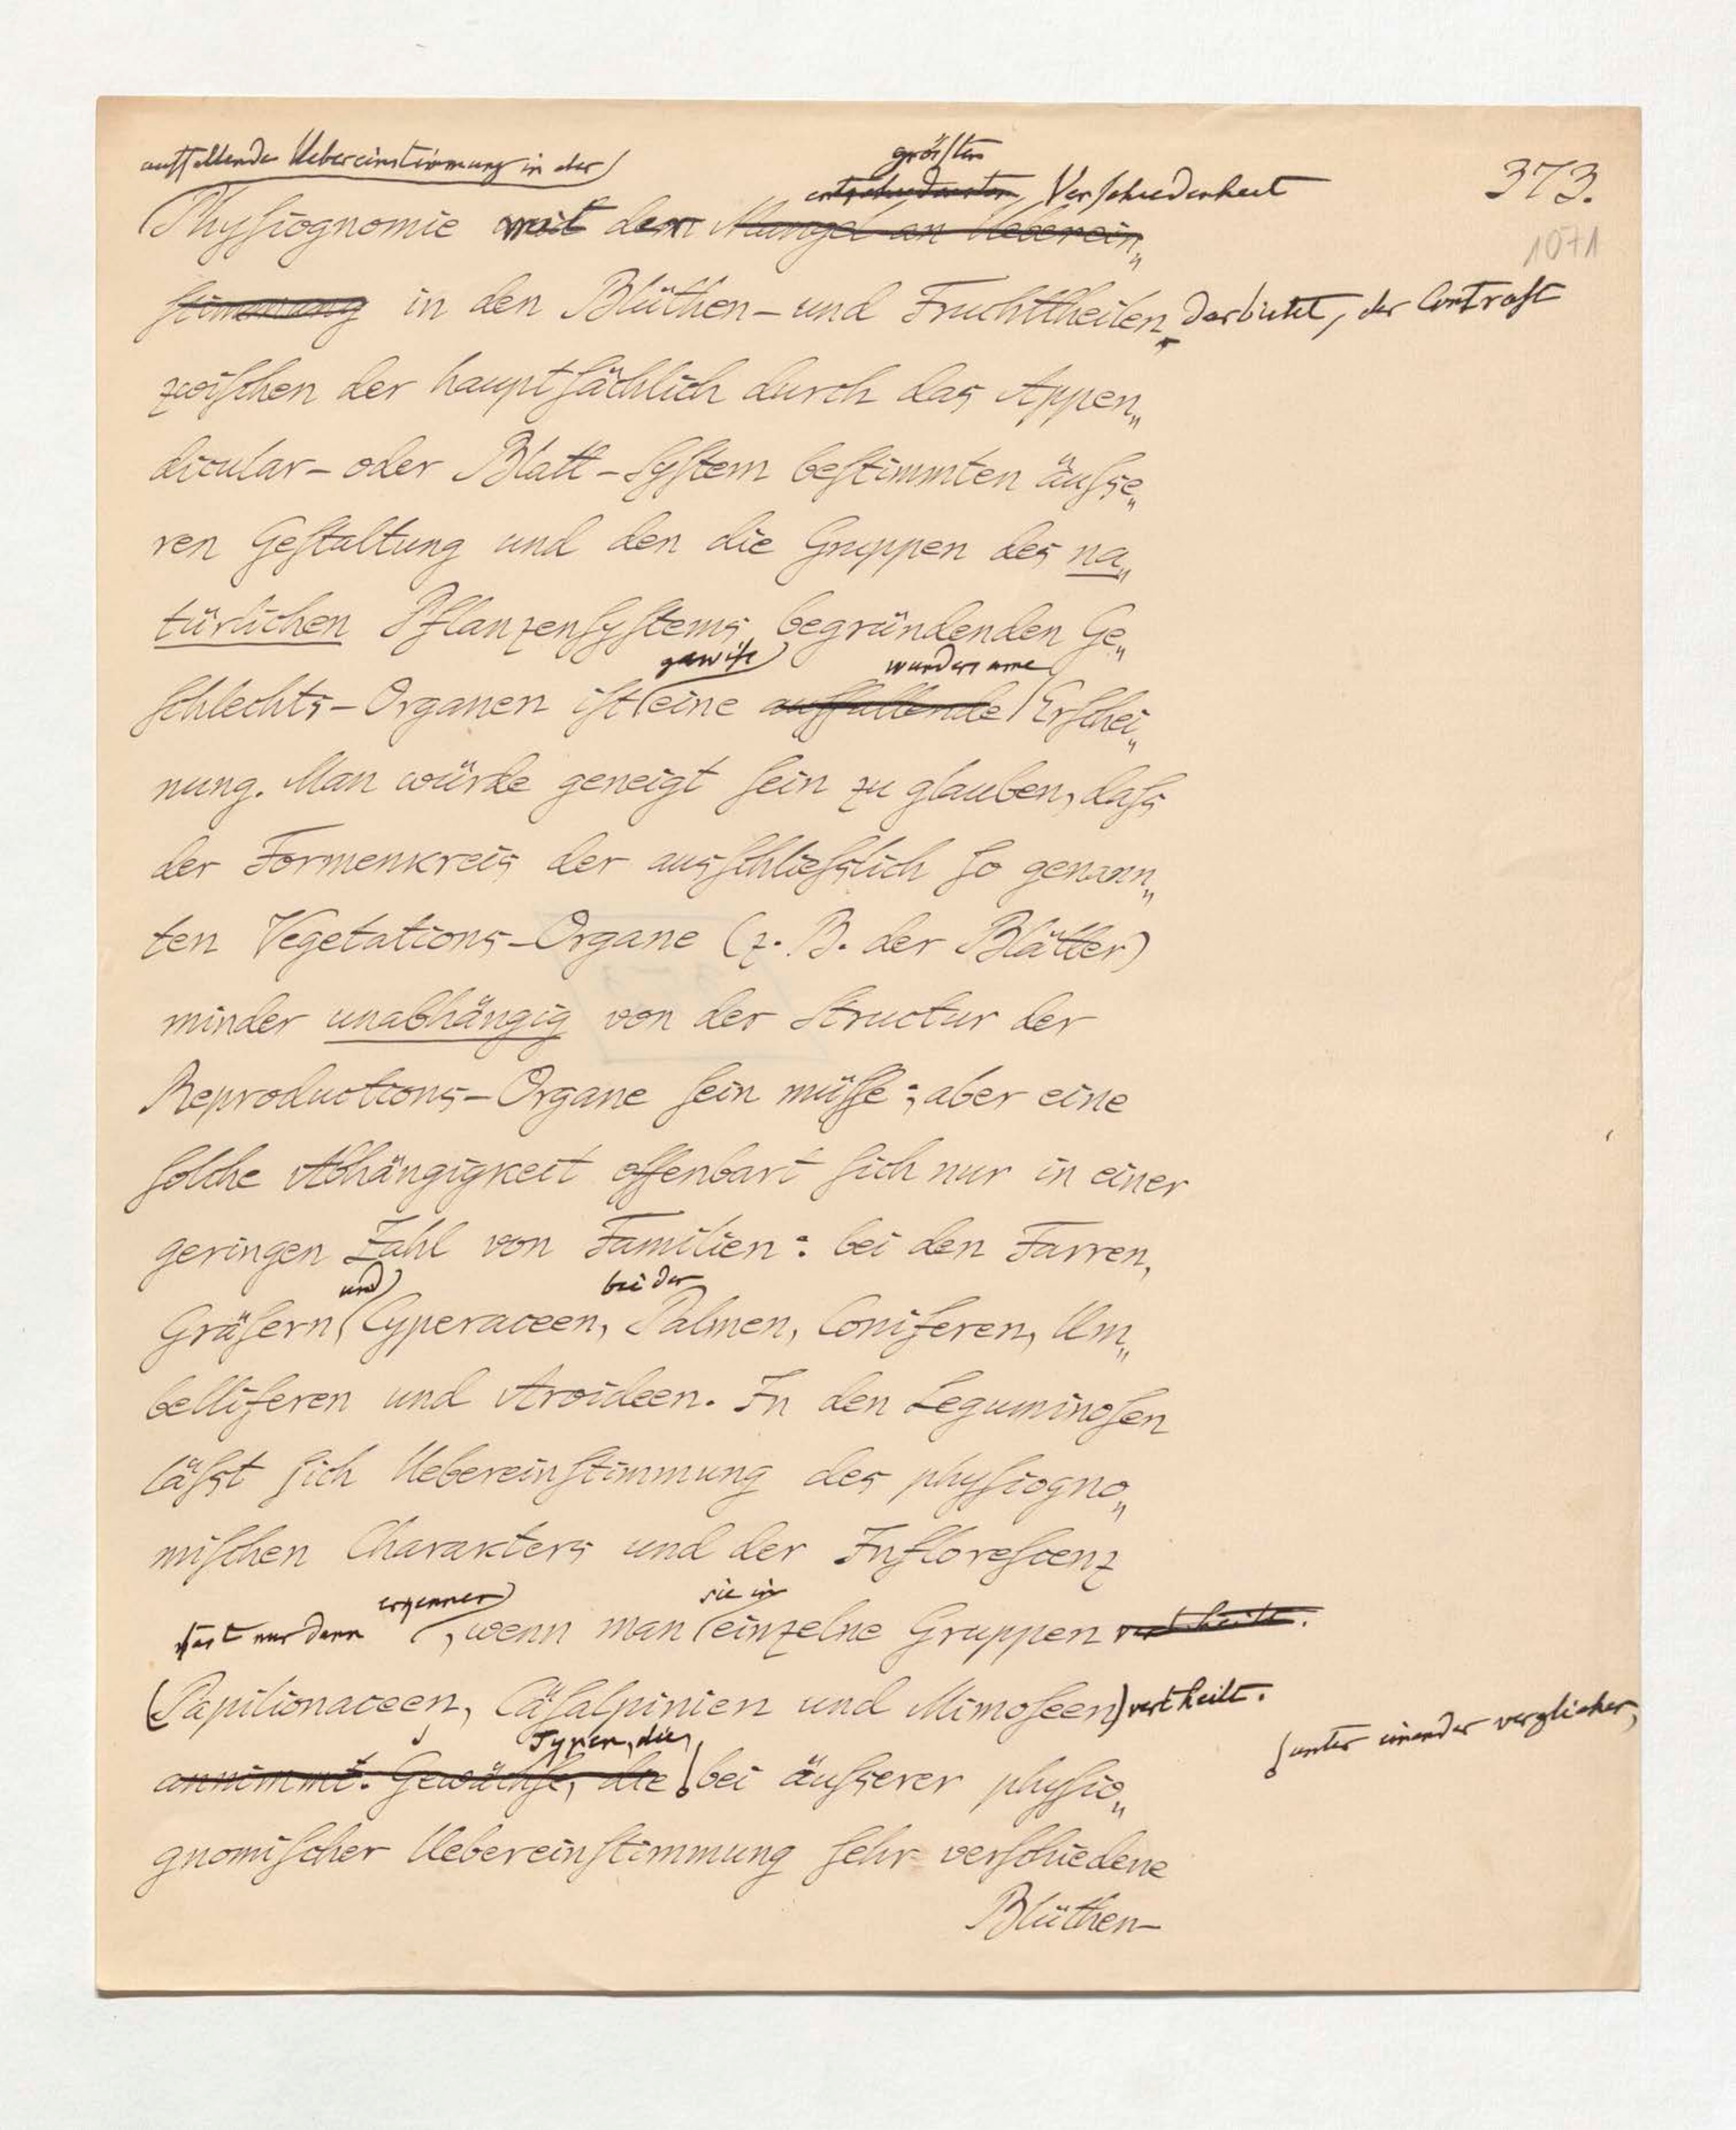 auffallende Uebereinstimmung in der
größten
373.
entschiedensten Verschiedenheit
Physiognomie mit der Mangel an Ueberein„
1071
stimmung in den Blüthen- und Fruchttheilen darbietet, der Contrast
zwischen der hauptsächlich durch das Appen„
dicular- oder Blatt-System bestimmten äusse„
ren Gestaltung und den die Gruppen des na„
türlichen Pflanzensystems begründenden Ge„
gewiß wundersame
schlechts-Organen ist eine auffallende Erschei„
nung. Man würde geneigt sein zu glauben, dass
der Formenkreis der ausschliesslich so genann„
ten Vegetations-Organe (z. B. der Blätter)
minder unabhängig von der Structur der
Reproductions-Organe sein müsse; aber eine
solche Abhängigkeit offenbart sich nur in einer
geringen Zahl von Familien: bei den Farren,
und bei der
Gräsern, Cyperaceen, Palmen, Coniferen, Um„
belliferen und Aroideen. In den Leguminosen
lässt sich Uebereinstimmung des physiogno„
mischen Charakters und der Inflorescenz
erkennen sie in
fast nur dann, wenn man einzelne Gruppen vertheilt.
(Papilionaceen, Cäsalpinien und Mimoseen) vertheilt.
unter einander verglichen,
Typen, die,
annimmt. Gewächse, die bei äusserer physio„
gnomischer Uebereinstimmung sehr verschiedene
Blüthen-